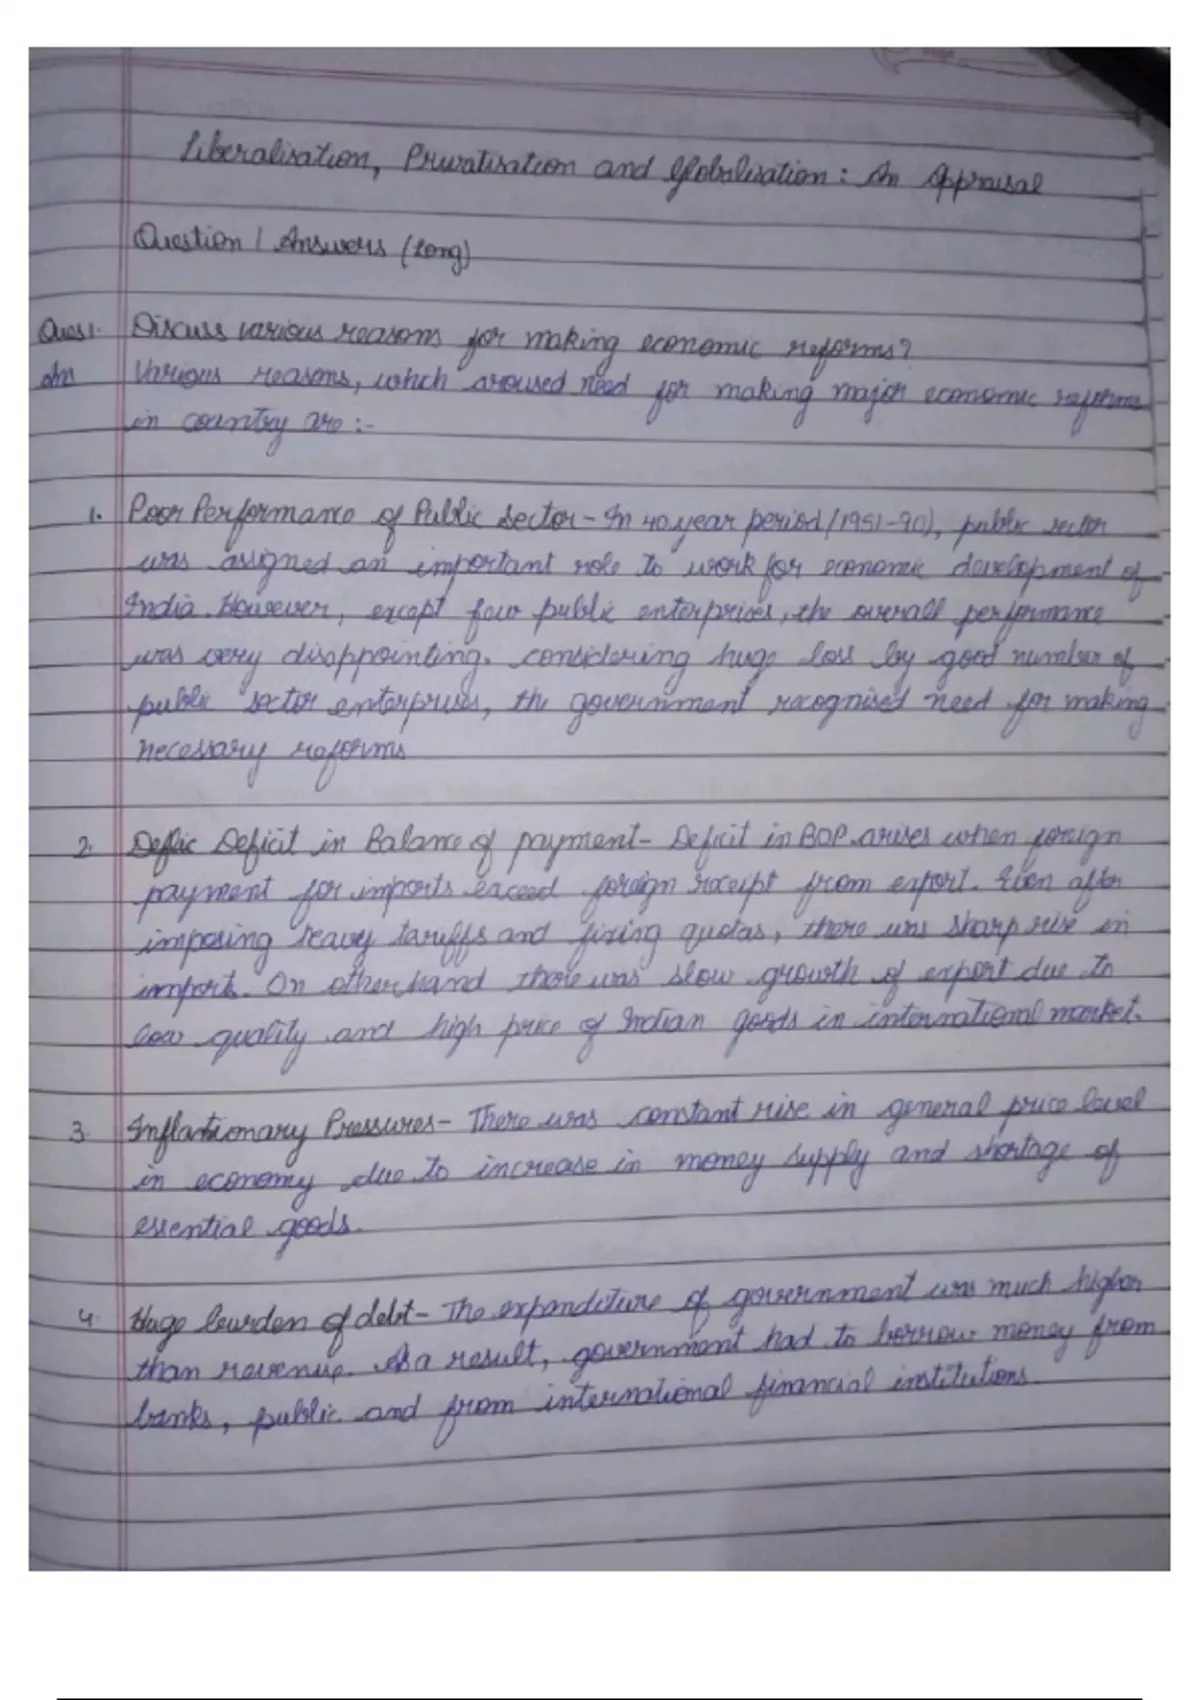 Liberalisation, Privatisation and Globalisation: An Appraisal
Question / Answers (Long)
Ques 1. Discuss various reasons for making economic reforms?
An Various reasons, which aroused need for making major economic reforms
in country are :-
1. Poor Performance of Public Sector - In 40 year period (1951-90), public sector
was assigned an important role to work for economic development of
India. However, except few public enterprises, the overall performance
was very disappointing. considering huge loss by good number of
public sector enterprises, the government recognised need for making
necessary reforms
2. Defic Deficit in Balance of payment - Deficit in BOP arises when foreign
payment for imports exceed foreign receipt from export. Even after
imposing heavy tariffs and fixing quotas, there was sharp rise in
import. On other hand there was slow growth of export due to
low quality and high price of Indian goods in international market.
3. Inflationary Pressures - There was constant rise in general price level
in economy due to increase in money supply and shortage of
essential goods.
4. Huge burden of debt - The expenditure of government was much higher
than revenue. As a result, government had to borrow money from
banks, public and from international financial institutions.